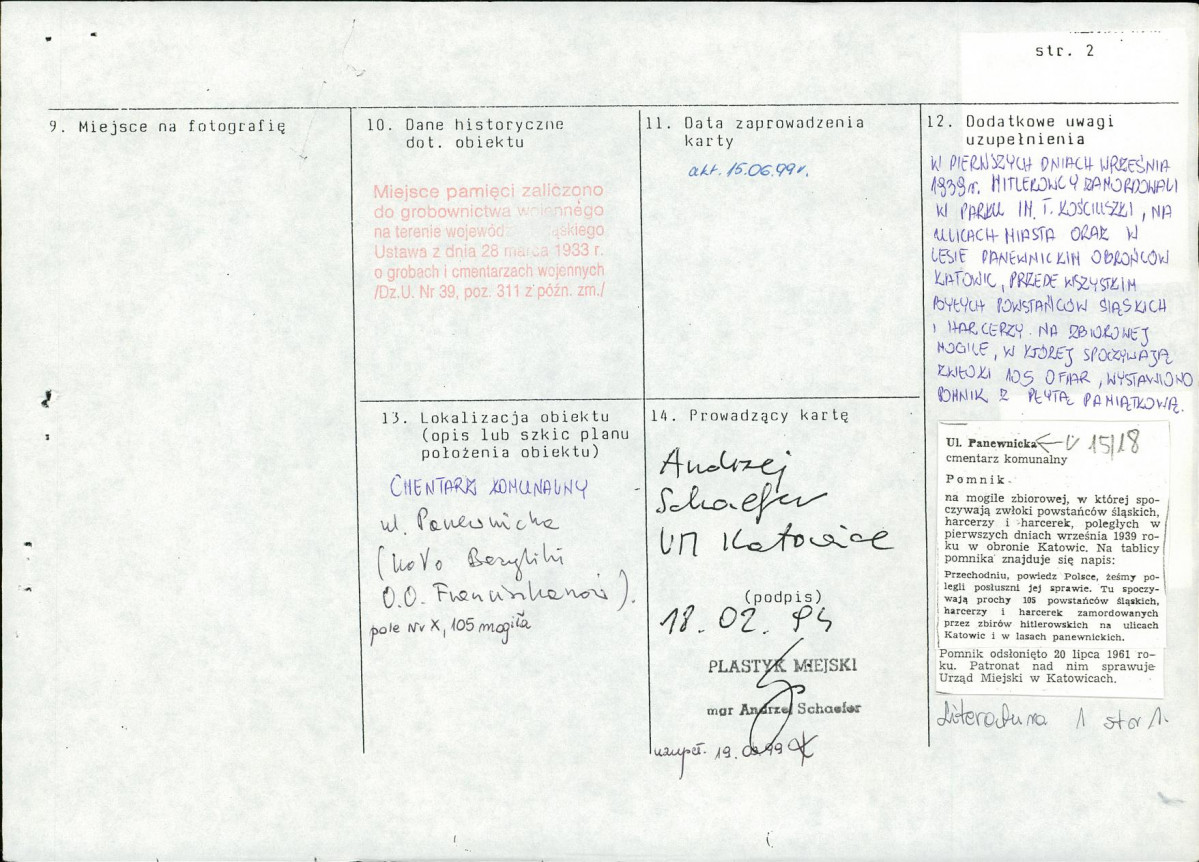 str. 2
9. Miejsce na fotografię
10. Dane historyczne
dot. obiektu
Miejsce pamięci zaliczono
do grobownictwa wojennego
na terenie wojewódz ąskiego
Ustawa z dnia 28 marca 1933 r.
o grobach i cmentarzach wojennych
/Dz.U. Nr 39, poz. 311 z późn. zm./
11. Data zaprowadzenia
karty
akt. 15.06.99r.
12. Dodatkowe uwagi
uzupełnienia
W PIERWSZYCH DNIACH WRZEŚNIA
1939r. HITLEROWCY ZAMORDOWALI
W PARKU IM. T. KOŚCIUSZKI, NA
ULICACH MIASTA ORAZ W
LESIE PANEWNICKIM OBROŃCÓW
KATOWIC, PRZEDE WSZYSTKIM
BYŁYCH POWSTAŃCÓW ŚLĄSKICH
I HARCERZY. NA ZBIOROWEJ
MOGILE, W KTÓREJ SPOCZYWAJĄ
ZWŁOKI 105 OFIAR, WYSTAWIONO
POMNIK Z PŁYTĄ PAMIĄTKOWĄ.
Ul. Panewnicka 15/18
cmentarz komunalny
Pomnik
na mogile zbiorowej, w której spo-
czywają zwłoki powstańców śląskich,
harcerzy i harcerek, poległych w
pierwszych dniach września 1939 ro-
ku w obronie Katowic. Na tablicy
pomnika znajduje się napis:
Przechodniu, powiedz Polsce, żeśmy po-
legli posłuszni jej sprawie. Tu spoczy-
wają prochy 105 powstańców śląskich,
harcerzy i harcerek zamordowanych
przez zbirów hitlerowskich na ulicach
Katowic i w lasach panewnickich.
Pomnik odsłonięto 20 lipca 1961 ro-
ku. Patronat nad nim sprawuje
Urząd Miejski w Katowicach.
Literatura 1 str 1.
13. Lokalizacja obiektu
(opis lub szkic planu
położenia obiektu)
CMENTARZ KOMUNALNY
ul. Panewnicka
(koło Bazyliki
O.O. Franciszkanów).
pole Nr X, 105 mogiła
14. Prowadzący kartę
Andrzej
Schaefer
UM Katowice
(podpis)
18. 02. 94
PLASTYK MIEJSKI
mgr Andrzej Schaefer
uzupeł. 19.